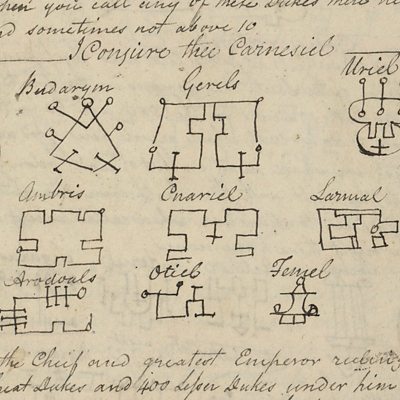 when you call any of these Dukes there
and sometimes not above 10
I Conjure thee Carnesiel
Budarym Gerels Uriel
Ambris Cnariel Larmal
Arodoals Otiel Femel
the Cheif and greatest Emperor ruling
great Dukes and 400 Lesser Dukes under him